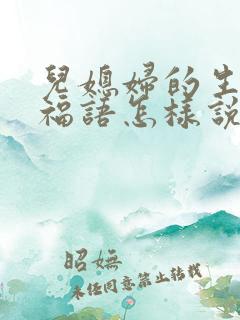 兒媳婦的生
福語怎樣說
昭嫵
未任同意禁止转载